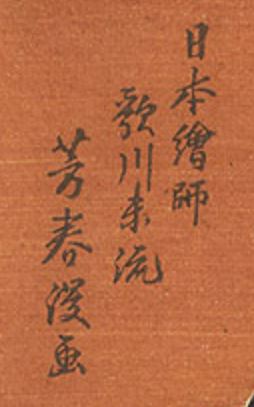 日本繪師
歌川末流
芳春漫画